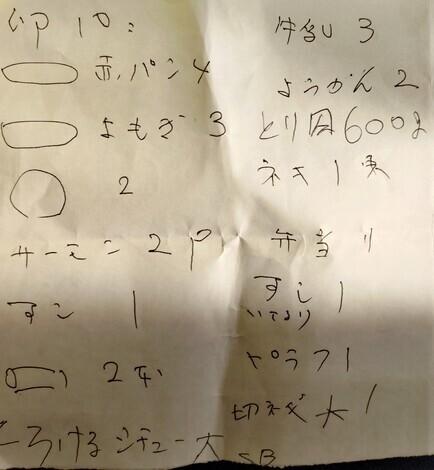 卵 10
赤パン 4
よもぎ 3
2
サーモン 2 P
すし 1
2本
とろけるシチュー 大 SB
牛乳 3
ようかん 2
とり肉 600g
ネギ 1束
弁当 1
すし 1
ピラフ 1
切ネギ 大 1